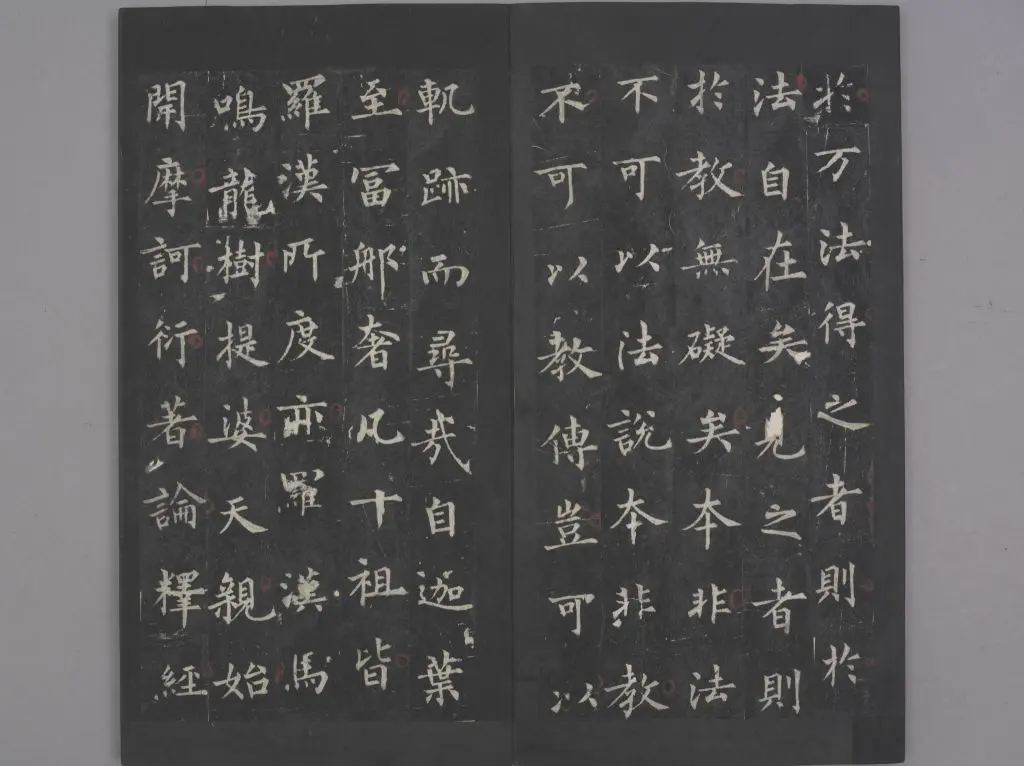 於万法得之者則於
法自在矣見之者則
於教無礙矣本非法
不可以法說本非教
不可以教傳豈可以
軌跡而尋哉自迦葉
至冨那奢凡十祖皆
羅漢所度亦羅漢馬
鳴龍樹提婆天親始
開摩訶衍著論釋經